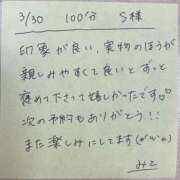 3/30 100分 S様
印象が良い、実物のほうが
親しみやすくて良いとずっと
褒めて下さって嬉しかったです♡
次の予約もありがとう!!
また楽しみにしてます(*ˊᵕˋ*)